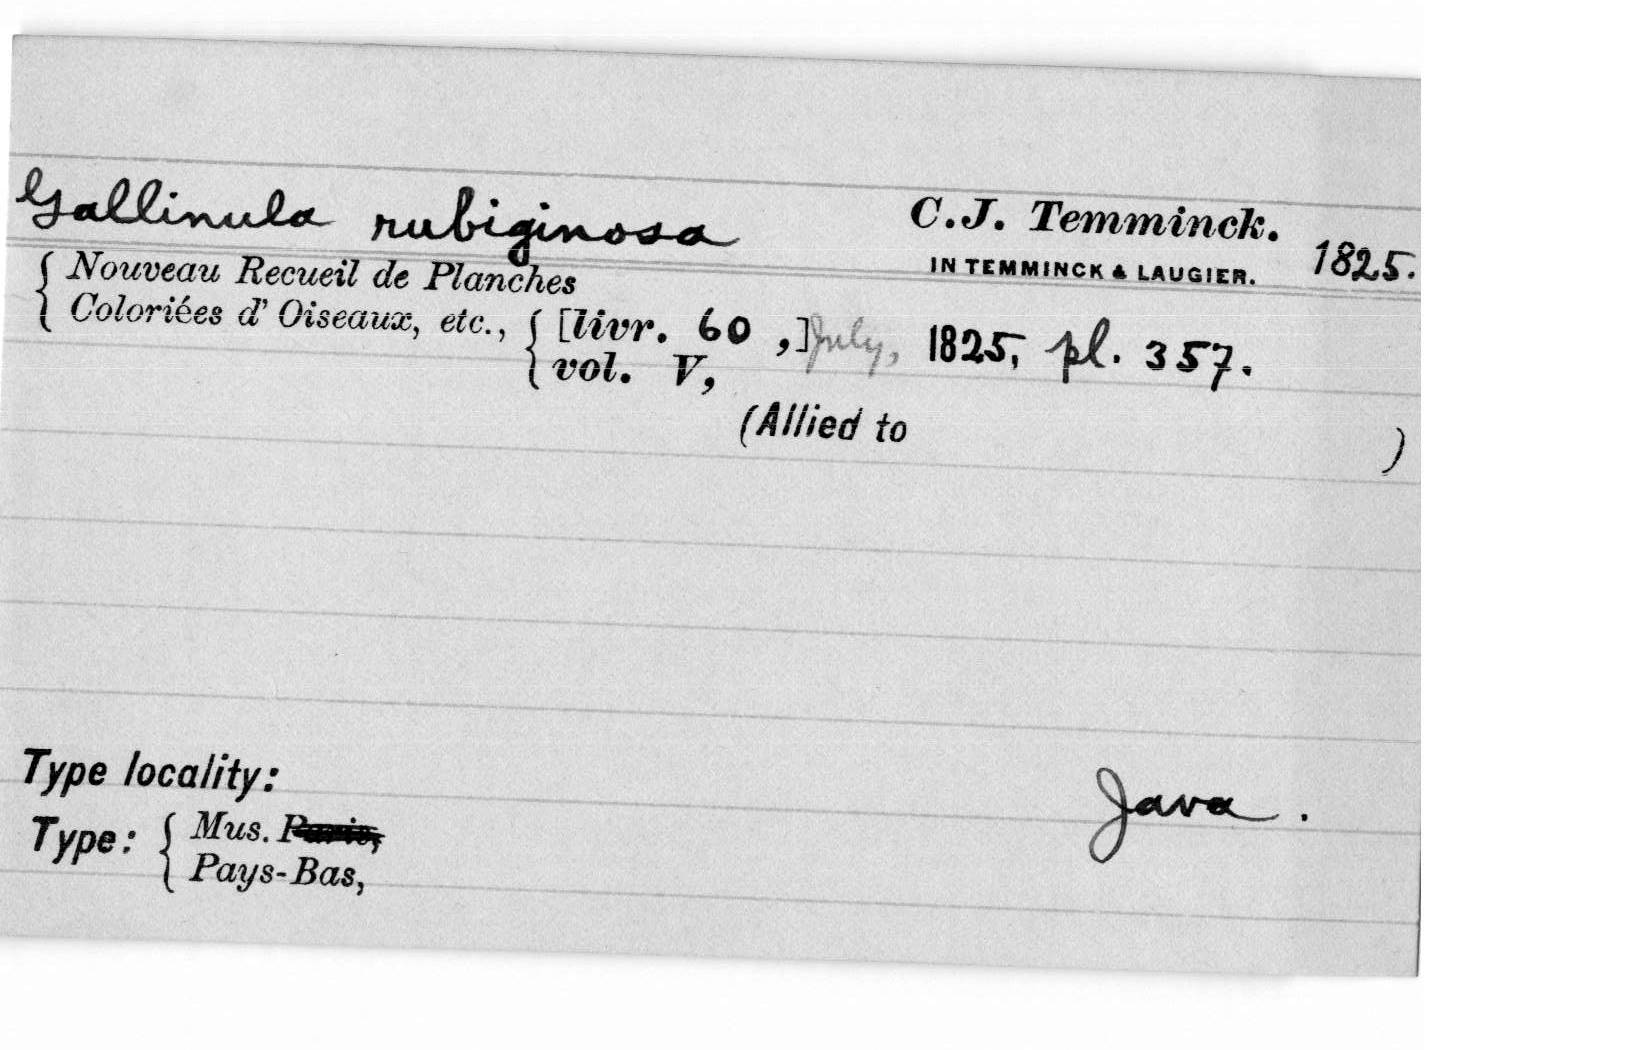 Gallinula rubiginosa C.J. Temminck.
IN TEMMINCK & LAUGIER. 1825.
{ Nouveau Recueil de Planches
Coloriées d' Oiseaux, etc., { [livr. 60 ,] July, 1825, pl. 357.
vol. V,
(Allied to )
Type locality: Java.
Type: { Mus. Paris,
Pays-Bas,